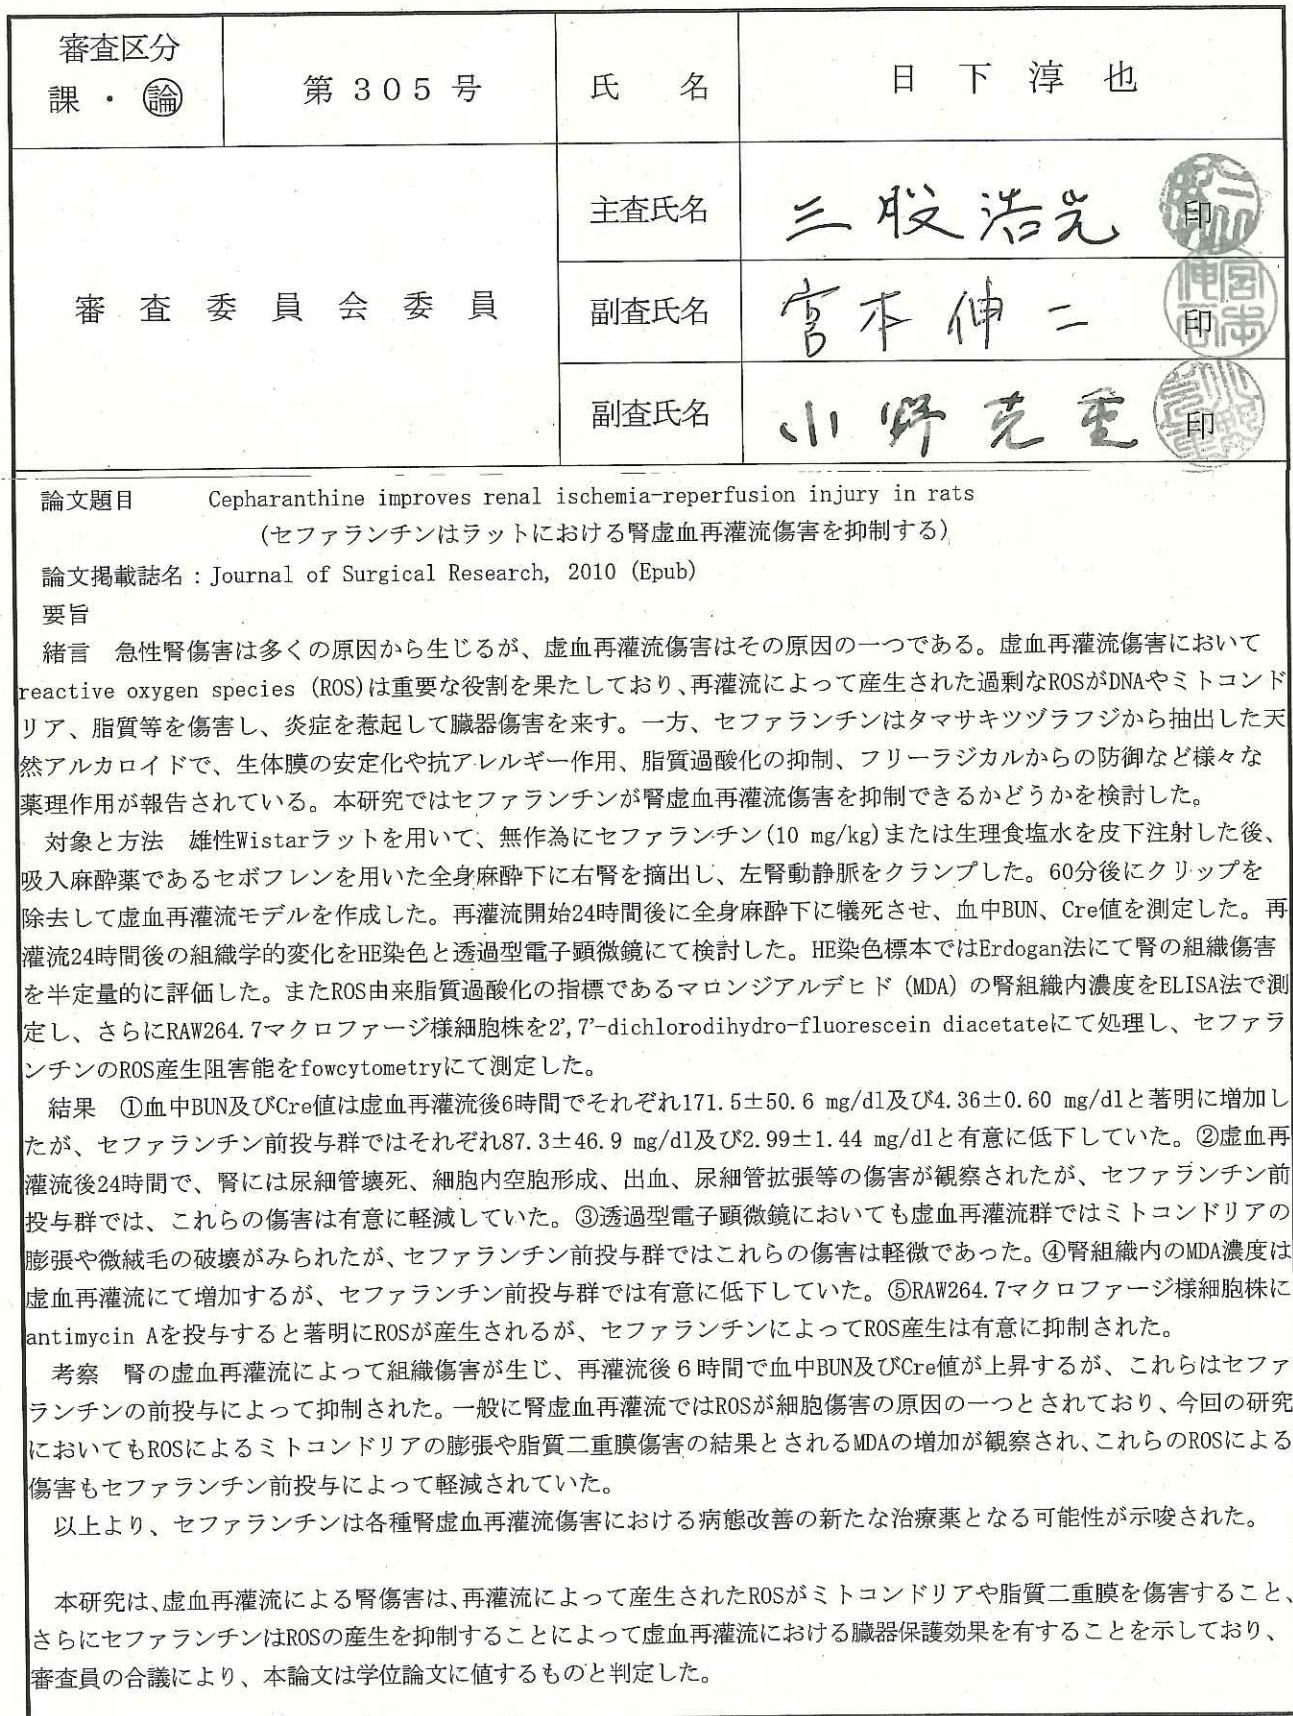 審査区分
課・論
第305号
氏 名
日 下 淳 也
審査委員会委員
主査氏名
三股浩光
印
副査氏名
宮本伸二
印
副査氏名
小野克重
印
論文題目 Cepharanthine improves renal ischemia-reperfusion injury in rats
(セファランチンはラットにおける腎虚血再灌流傷害を抑制する)
論文掲載誌名：Journal of Surgical Research, 2010 (Epub)
要旨
緒言 急性腎傷害は多くの原因から生じるが、虚血再灌流傷害はその原因の一つである。虚血再灌流傷害において
reactive oxygen species (ROS)は重要な役割を果たしており、再灌流によって産生された過剰なROSがDNAやミトコンド
リア、脂質等を傷害し、炎症を惹起して臓器傷害を来す。一方、セファランチンはタマサキツヅラフジから抽出した天
然アルカロイドで、生体膜の安定化や抗アレルギー作用、脂質過酸化の抑制、フリーラジカルからの防御など様々な
薬理作用が報告されている。本研究ではセファランチンが腎虚血再灌流傷害を抑制できるかどうかを検討した。
対象と方法 雄性Wistarラットを用いて、無作為にセファランチン(10 mg/kg)または生理食塩水を皮下注射した後、
吸入麻酔薬であるセボフレンを用いた全身麻酔下に右腎を摘出し、左腎動静脈をクランプした。60分後にクリップを
除去して虚血再灌流モデルを作成した。再灌流開始24時間後に全身麻酔下に犠死させ、血中BUN、Cre値を測定した。再
灌流24時間後の組織学的変化をHE染色と透過型電子顕微鏡にて検討した。HE染色標本ではErdogan法にて腎の組織傷害
を半定量的に評価した。またROS由来脂質過酸化の指標であるマロンジアルデヒド(MDA)の腎組織内濃度をELISA法で測
定し、さらにRAW264.7マクロファージ様細胞株を2',7'-dichlorodihydro-fluorescein diacetateにて処理し、セファラ
ンチンのROS産生阻害能をfowcytometryにて測定した。
結果 ①血中BUN及びCre値は虚血再灌流後6時間でそれぞれ171.5±50.6 mg/dl及び4.36±0.60 mg/dlと著明に増加し
たが、セファランチン前投与群ではそれぞれ87.3±46.9 mg/dl及び2.99±1.44 mg/dlと有意に低下していた。②虚血再
灌流後24時間で、腎には尿細管壊死、細胞内空胞形成、出血、尿細管拡張等の傷害が観察されたが、セファランチン前
投与群では、これらの傷害は有意に軽減していた。③透過型電子顕微鏡においても虚血再灌流群ではミトコンドリアの
膨張や微絨毛の破壊がみられたが、セファランチン前投与群ではこれらの傷害は軽微であった。④腎組織内のMDA濃度は
虚血再灌流にて増加するが、セファランチン前投与群では有意に低下していた。⑤RAW264.7マクロファージ様細胞株に
antimycin Aを投与すると著明にROSが産生されるが、セファランチンによってROS産生は有意に抑制された。
考察 腎の虚血再灌流によって組織傷害が生じ、再灌流後６時間で血中BUN及びCre値が上昇するが、これらはセファ
ランチンの前投与によって抑制された。一般に腎虚血再灌流ではROSが細胞傷害の原因の一つとされており、今回の研究
においてもROSによるミトコンドリアの膨張や脂質二重膜傷害の結果とされるMDAの増加が観察され、これらのROSによる
傷害もセファランチン前投与によって軽減されていた。
以上より、セファランチンは各種腎虚血再灌流傷害における病態改善の新たな治療薬となる可能性が示唆された。
本研究は、虚血再灌流による腎傷害は、再灌流によって産生されたROSがミトコンドリアや脂質二重膜を傷害すること、
さらにセファランチンはROSの産生を抑制することによって虚血再灌流における臓器保護効果を有することを示しており、
審査員の合議により、本論文は学位論文に値するものと判定した。